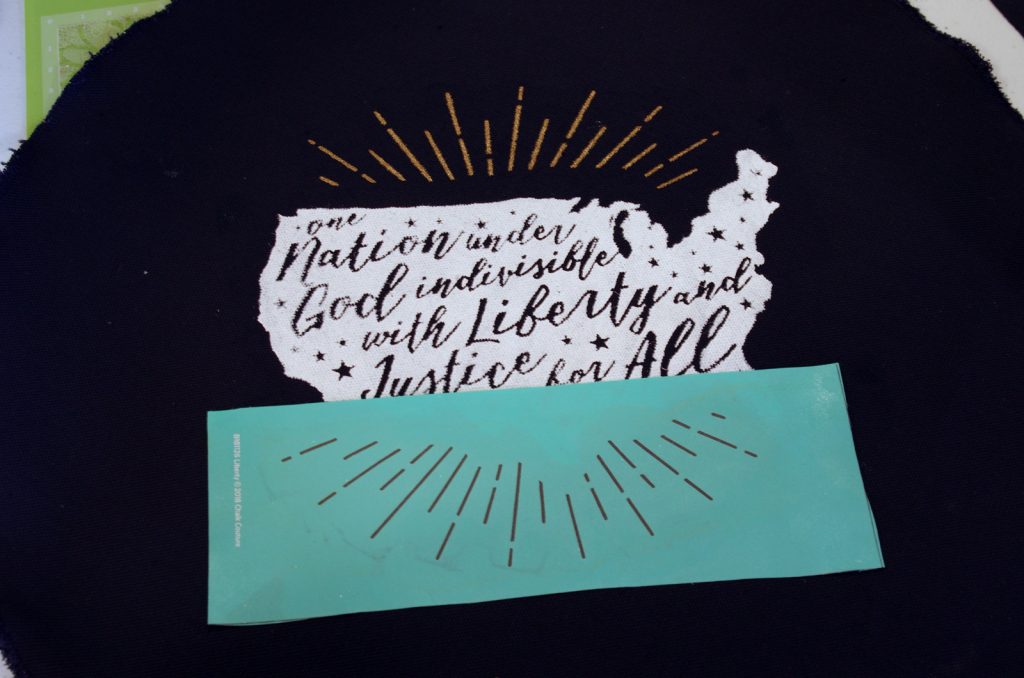 one
Nation under
God indivisible
with Liberty and
Justice for All
B1811126 Liberty © 2018 Chalk Couture